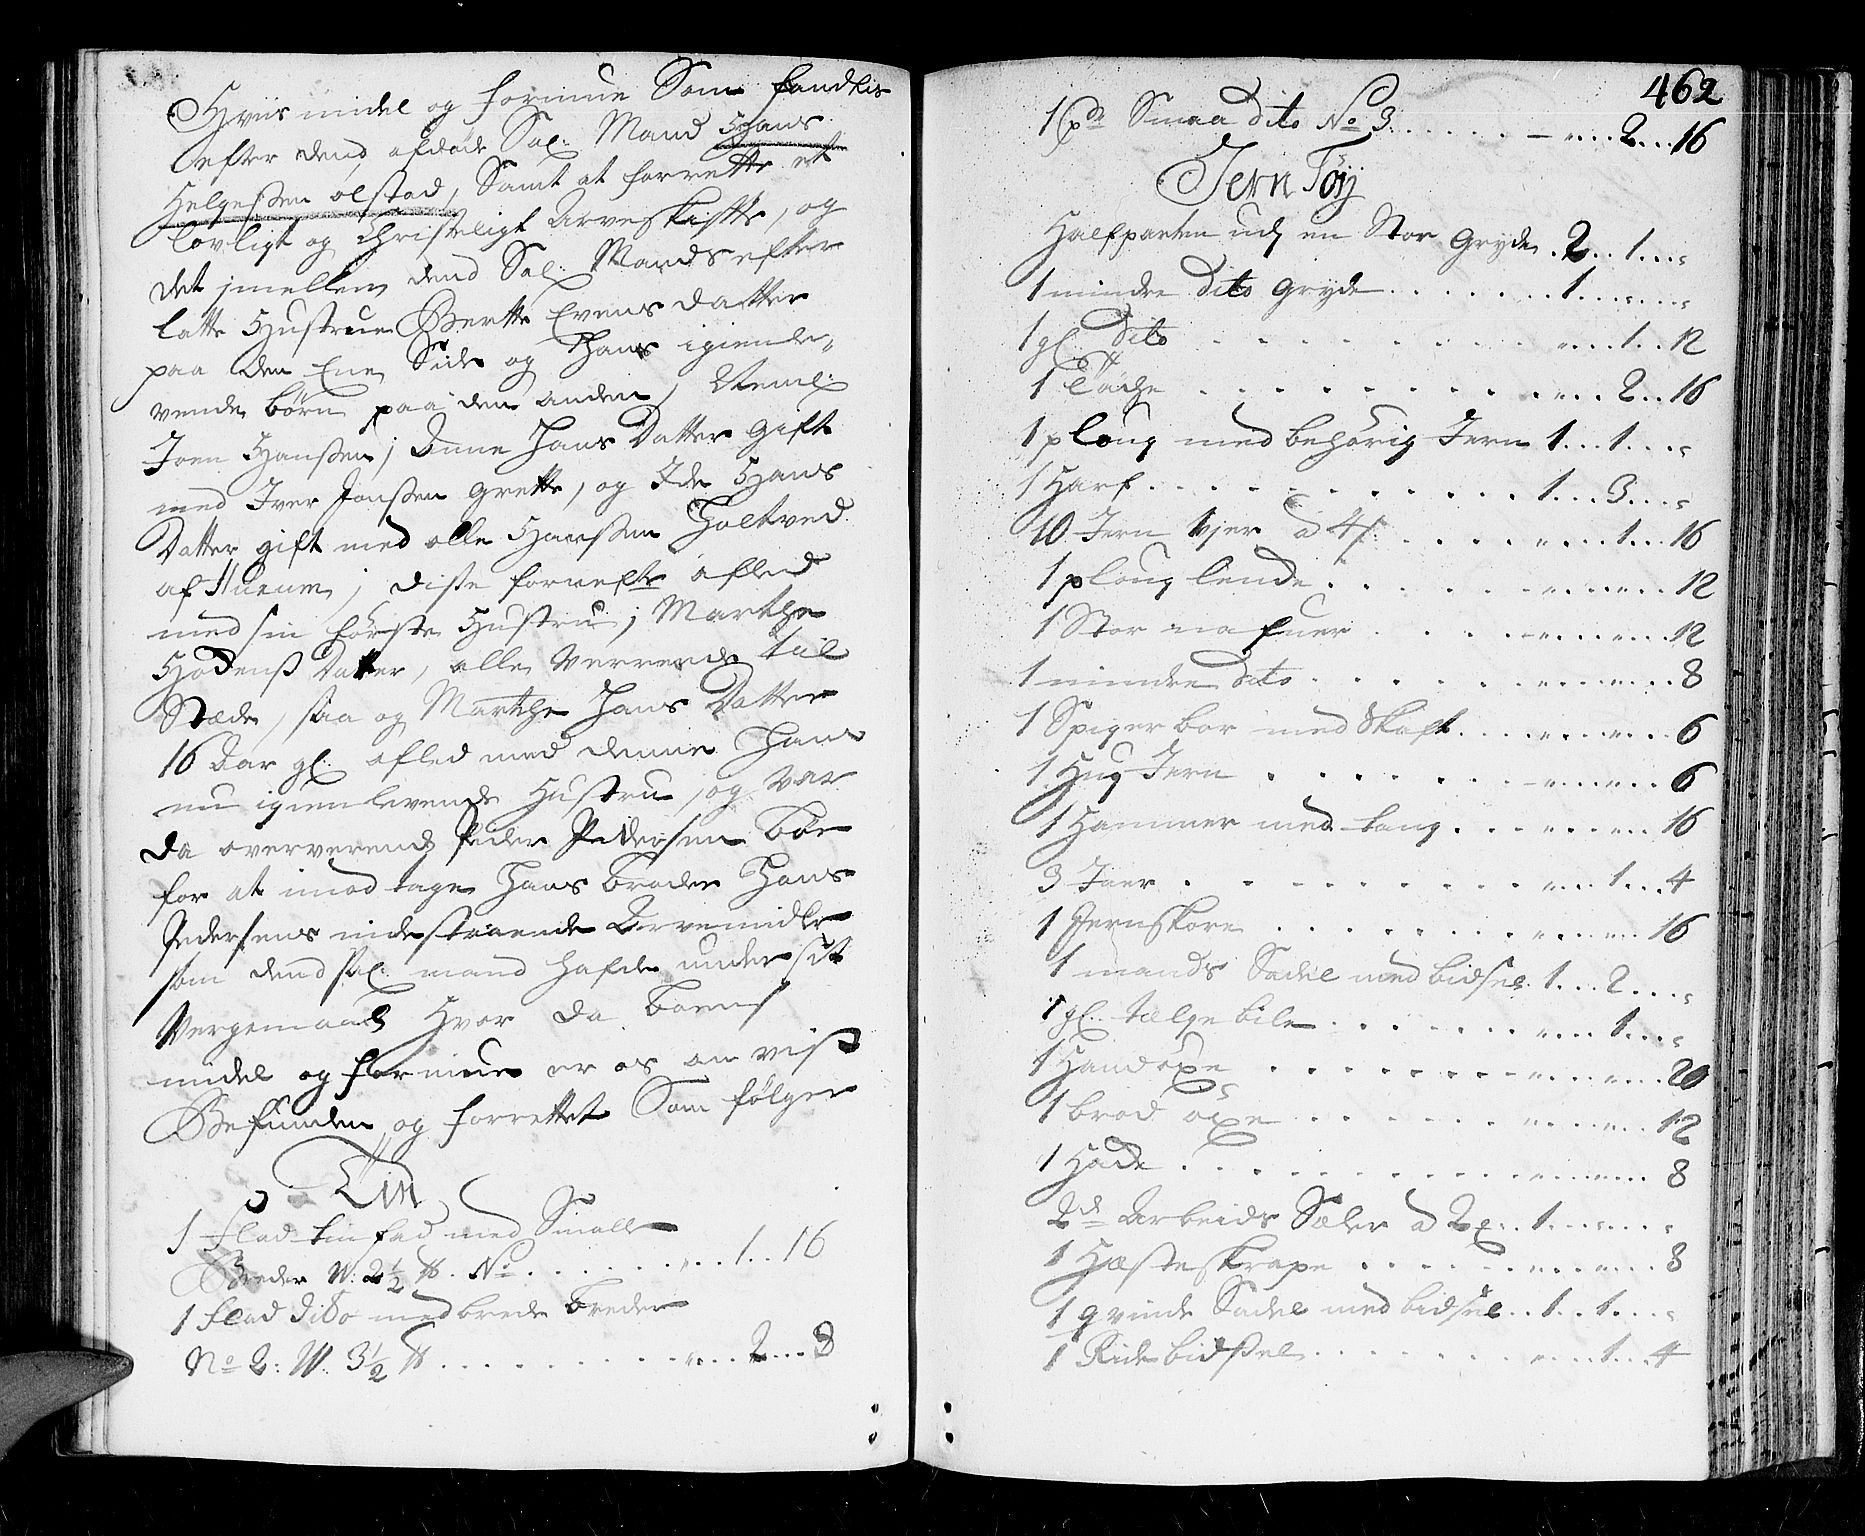 Hviis midel og formue Som fandtis
efter dend afdøde Sal: Mand Hans
Helgesen olstad, Samt at forrette et
lovligt og Christeligt Arveskifte, og
det imellem dend Sal: Mands efter
latte Hustrue Berthe Evens datter
paa den Ene Side og Hans igienle,,
vende børn paa den anden, Neml:
Joen Hanssen, Anne Hans Datter gift
med Iver Jonssen grette, og Ide Hans
Datter gift med olle Hanssen Holtved
af Hurum, disse forrefte afled
med sin første Hustru, Marthe
Datter, alle verrende til
Stæde, saa og Marthe Hans Datter
16 Aar gl: afled med denne Hans
nu igienlevende Hustru, og var
da oververende Peder Pedersen Bøe
for at imod tage Hans broder Hans
Pedersens indestaaende Arvemidler
som dend Sal: mand hafde under sit
Vergemaal Hvor da boens
midel og formue er os an vist
Befunden og forrettet Som følger
Tin
1 Flad tin fad med Smalle
Breder W: 2½ ℔. No . . . 1 . . 16
1 Flad dito med brede breder
No 2: W: 3½ ℔ . . . 2 . . . 8
462
1 Smaa dito No 3 . . . 2 . . . 16
Jern Tøy
Halfparten udj en Stor gryde . 2 . . 1 . . .
1 mindre dito gryde . . . 1 . . .
1 gl: dito . . . 1 . . 12
1 . . . 2 . . 16
1 ploug med behørig Jern 1 . . . 1 . . .
1 Harf . . . 1 . . . 3 . . .
10 Jern Vjer a 4 s: . . . 1 . . . 16
1 ploug lende . . . 12
1 Stor nafuer . . . 12
1 mindre dito . . . 8
1 Spiger bor med Skaft . . . 6
1 Hug Jern . . . 6
1 Hammer med tang . . . 16
3 . . . 1 . . . 4
1 Jernskore . . . 16
1 mands Sadel med bidsel 1 . . . 2 . . .
1 gl: talge bile . . . 1 . . .
1 Handøxe . . . 20
1 brod øxe . . . 12
1 . . . 8
2de Arbeids Sæler a 2 . . 1 . . .
1 Hæsteskrape . . . 8
1 qvinde Sadel med bidsel . . 1 . . 1 . . .
1 Ride bidssel . . . 1 . . . 4